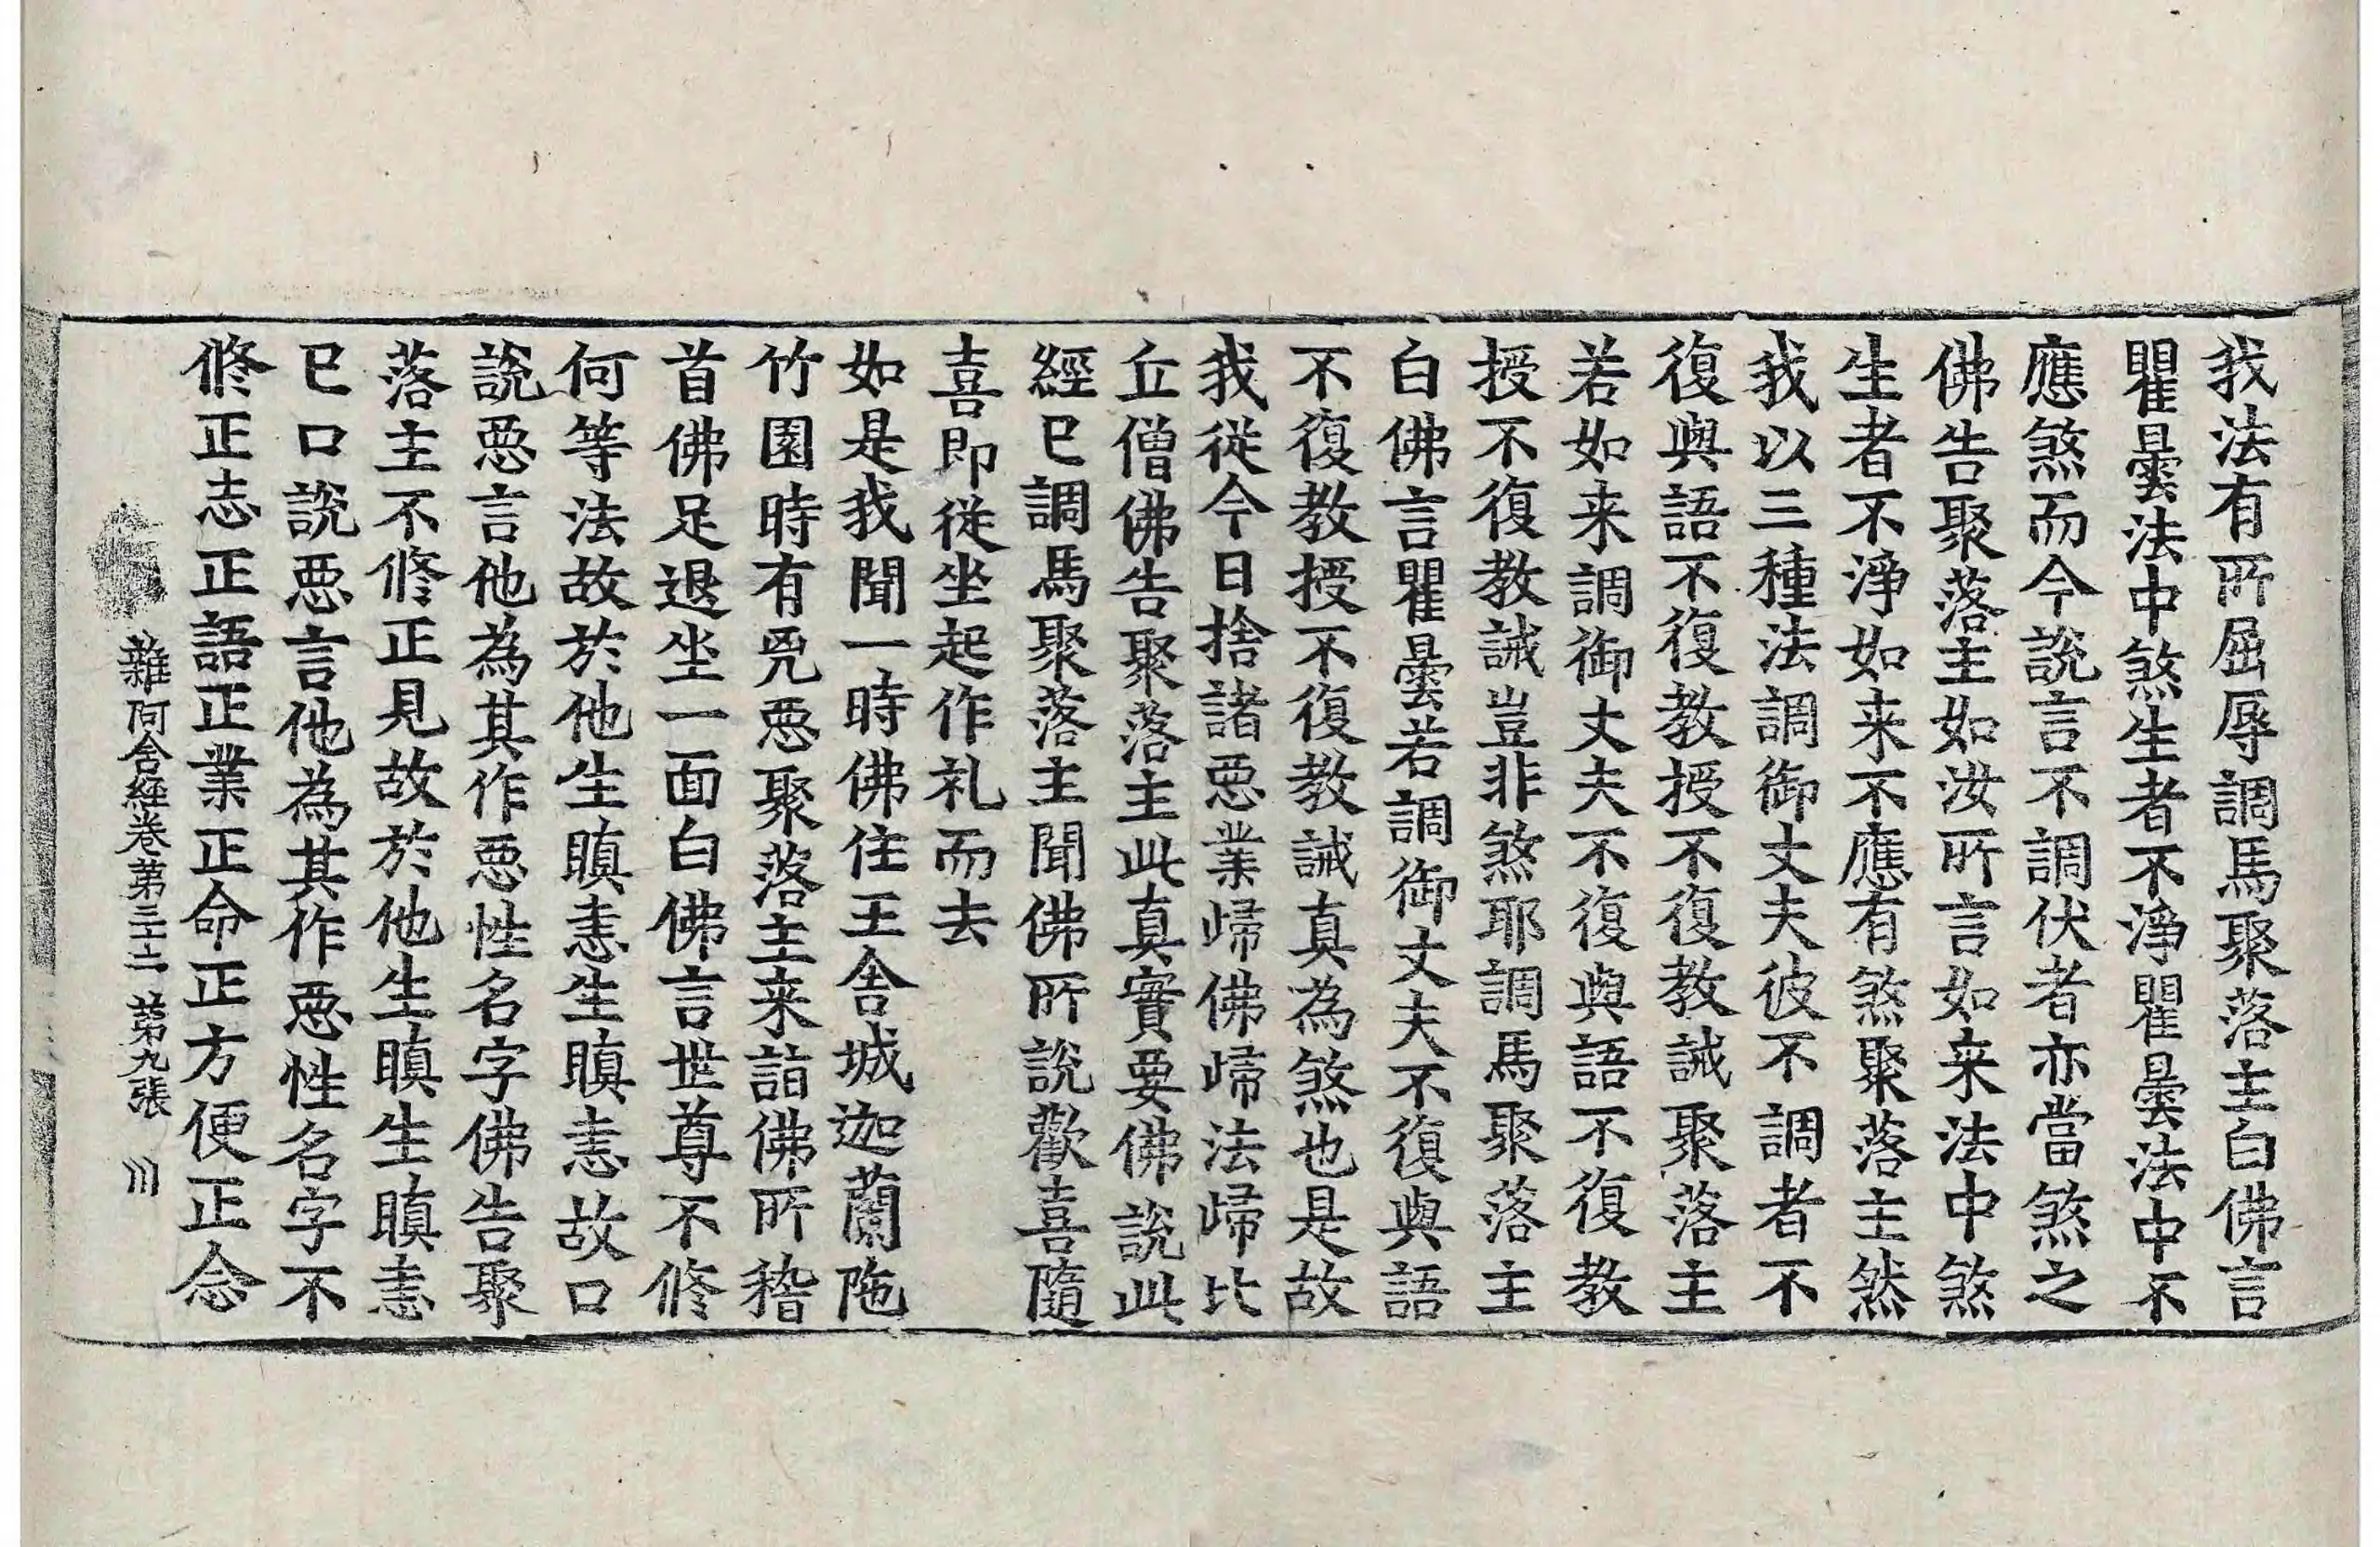 我法有所屈辱調馬聚落主白佛言
瞿曇法中煞生者不淨瞿曇法中不
應煞而今說言不調伏者亦當煞之
佛告聚落主如汝所言如来法中煞
生者不淨如来不應有煞聚落主然
我以三種法調御丈夫彼不調者不
復與語不復教授不復教誡聚落主
若如来調御丈夫不復與語不復教
授不復教誡豈非煞耶調馬聚落主
白佛言瞿曇若調御丈夫不復與語
不復教授不復教誡真為煞也是故
我從今日捨諸惡業歸佛歸法歸比
丘僧佛告聚落主此真實要佛說此
經已調馬聚落主聞佛所說歡喜隨
喜即從坐起作礼而去
如是我聞一時佛住王舍城迦蘭陁
竹園時有兇惡聚落主来詣佛所稽
首佛足退坐一面白佛言世尊不修
何等法故於他生瞋恚生瞋恚故口
說惡言他為其作惡性名字佛告聚
落主不修正見故於他生瞋生瞋恚
已口說惡言他為其作惡性名字不
修正志正語正業正命正方便正念
雜阿含經卷第三十二 第九張